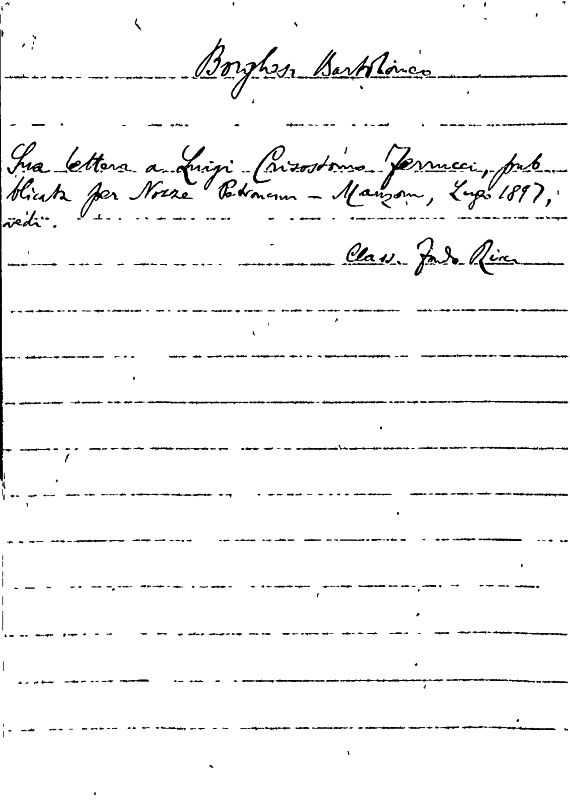 Borghesi Bartolomeo
Sua lettera a Luigi Crisostomo Ferrucci, pub
blicata per Nozze – Manzoni, Lugo 1897,
vedi.
Class. Fondo